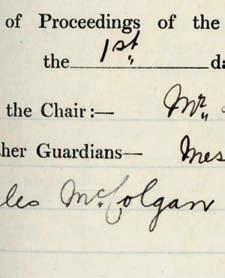 of Proceedings of the
the 1st da
the Chair:— Mr
her Guardians— Mes
les McColgan